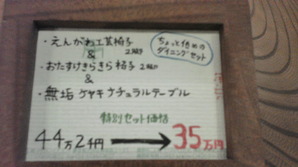 ちょっと低めの
ダイニングセット
・えんがわ工芸椅子 2脚
&
・おたすけきらきら椅子 2脚
&
・無垢ケヤキナチュラルテーブル
特別セット価格
44万2千円 → 35万円